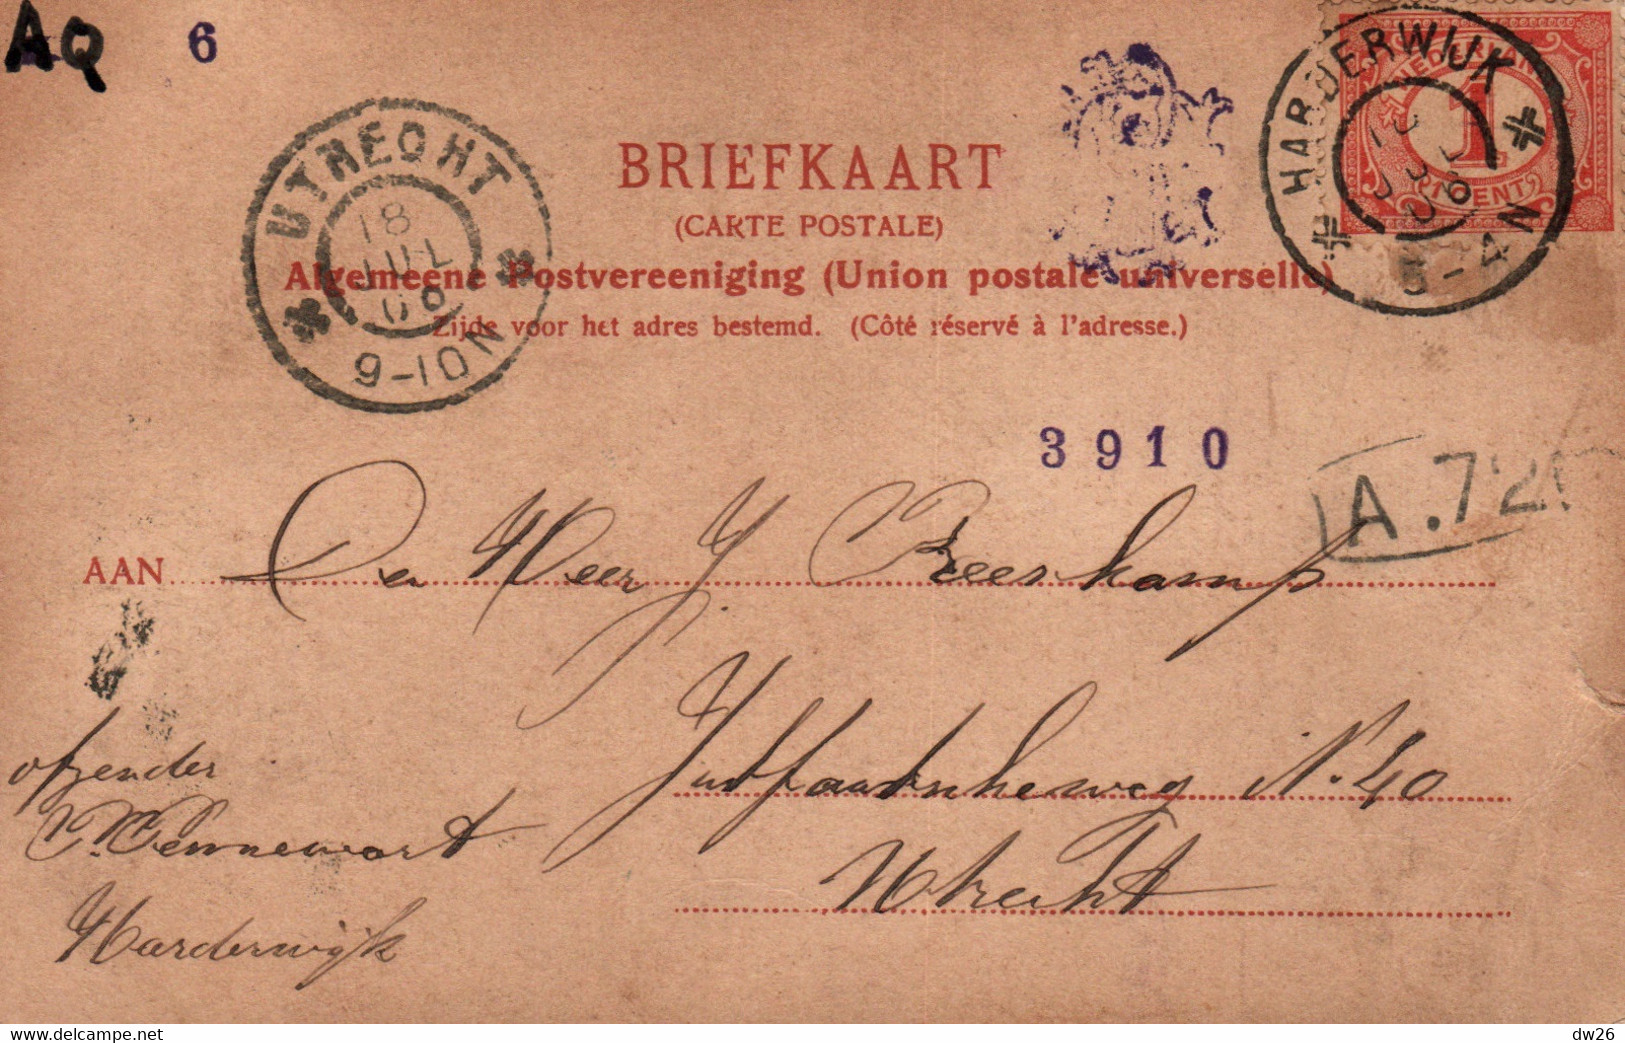 AQ 6
UTRECHT
18
JUL
9-10N
HARDERWIJK
NEDERLAND
1
CENT
BRIEFKAART
(CARTE POSTALE)
Algemeene Postvereeniging (Union postale universelle)
Zijde voor het adres bestemd. (Côté réservé à l'adresse.)
3910
A.72
AAN Den Heer J. Beerkamp
Jutfaatscheweg N. 40
Utrecht
afzender
Pennewart
Harderwijk
dw26